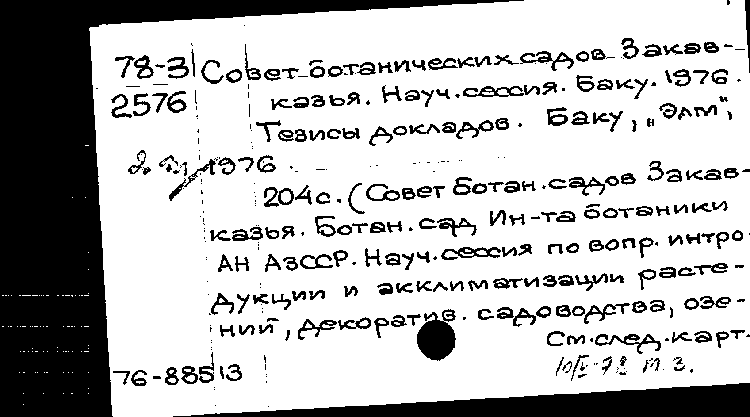 78-3 Совет ботанических садов Закав-
2576 казья. Науч.сессия. Баку. 1976.
Тезисы докладов. Баку, „Элм",
1976.
204с. (Совет ботан.садов Закав-
казья. Ботан.сад Ин-та ботаники
АН АзССР. Науч.сессия по вопр. интро-
дукции и акклиматизации расте-
ний, декоратив. садоводства, озе-
См.след.карт.
76-88513